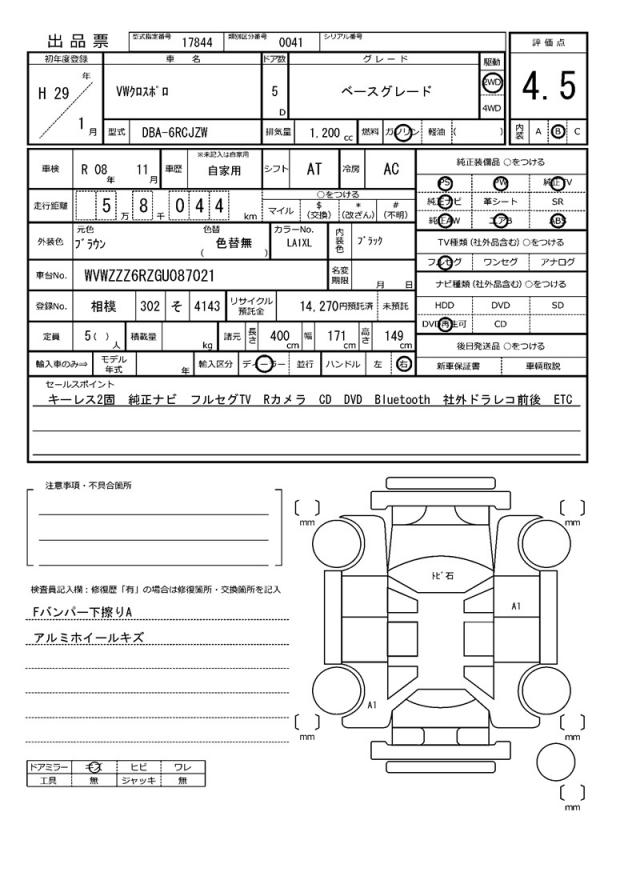 出品票 型式指定番号 17844 類別区分番号 0041 シリアル番号
初年度登録 車名 ドア数 グレード 駆動 評価点
H 29 年 1 月 VWクロスポロ 5 D ベースグレード 2WD 4WD 4.5
型式 DBA-6RCJZW 排気量 1.200 cc 燃料 ガソリン 軽油 ( ) 内装 A B C
車検 R 08 年 11 月 車歴 ※未記入は自家用 自家用 シフト AT 冷房 AC
走行距離 5 万 8 千 0 4 4 km ○をつける マイル $ (交換) * (改ざん) # (不明)
外装色 元色 ブラウン 色替 色替無 ( ) カラーNo. LA1XL 内装色 ブラック
車台No. WVWZZZ6RZGU087021 名変期限 月 日
登録No. 相模 302 そ 4143 リサイクル預託金 14,270円預託済 未預託
定員 5( ) 人 積載量 kg 諸元 長さ 400 cm 幅 171 cm 高さ 149 cm
輸入車のみ⇒ モデル年式 年 輸入区分 ディーラー 並行 ハンドル 左 右
純正装備品 ○をつける
PS PW 純正TV
純正ナビ 革シート SR
純正AW エアB ABS
TV種類 (社外品含む) ○をつける
フルセグ ワンセグ アナログ
ナビ種類 (社外品含む) ○をつける
HDD DVD SD
DVD再生可 CD
後日発送品 ○をつける
新車保証書 車輌取説
セールスポイント
キーレス2固 純正ナビ フルセグTV Rカメラ CD DVD Bluetooth 社外ドラレコ前後 ETC
注意事項・不具合箇所
検査員記入欄：修復歴「有」の場合は修復箇所・交換箇所を記入
Fバンパー下擦りA
アルミホイールキズ
ドアミラー キズ ヒビ ワレ
工具 無 ジャッキ 無
mm mm
トビ石
A1
A1
mm mm
mm